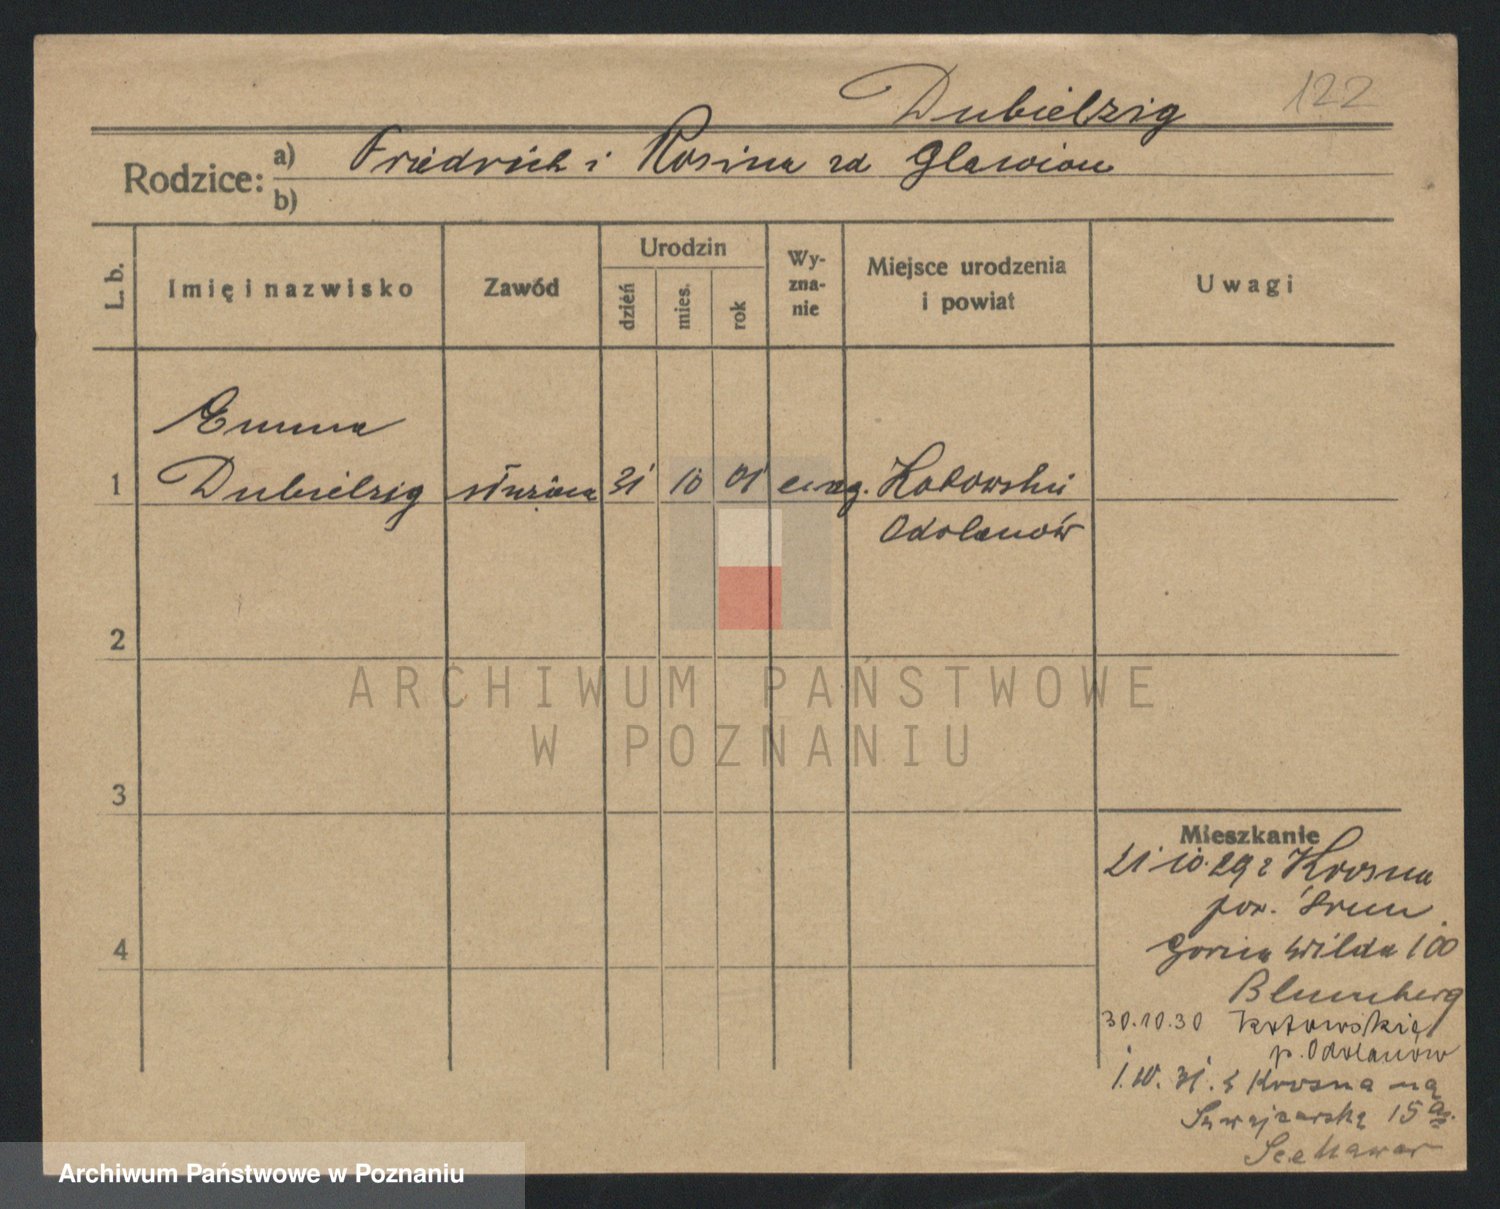 122
Dubielzig
Rodzice: a) Friedrich i Rosina zd Glawion
b)
L. b. Imię i nazwisko Zawód Urodzin dzień mies. rok Wyznanie Miejsce urodzenia i powiat Uwagi
Emma
1 Dubielzig służąca 31 10 01 ewag. Kotowskie
Odolanów
2
ARCHIWUM PAŃSTWOWE
W POZNANIU
3
Mieszkanie
21 10. 29 z Krosna
pow. Śrem
Górna Wilda 100
Blumberg
30.10.30 Kotowskie
p. Odolanów
1. 10. 31. z Krosna na
Szwajcarską 15
4
Archiwum Państwowe w Poznaniu